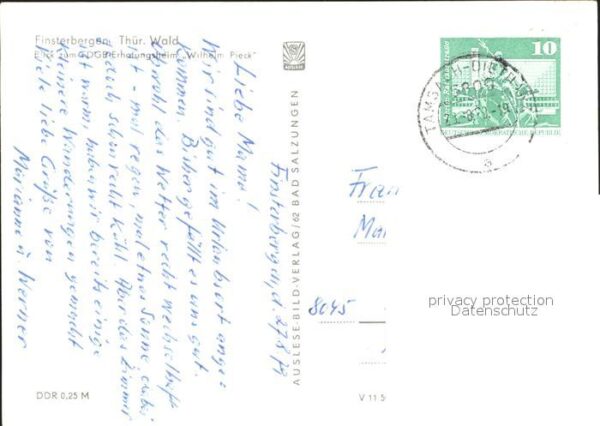 Finsterbergen, Thür. Wald
Blick zum FDGB-Erholungsheim „Wilhelm Pieck"
AUSLESE
Finsterbergen, d. 27.8.79
Liebe Mama!
Wir sind gut im Urlaubsort ange=
kommen. Bisher gefällt es uns gut.
Obwohl das Wetter recht wechselhaft
ist - mal regen, mal etwas Sonne, dabei
jedoch schon recht kühl. Aber das Zimmer
ist warm, haben wir bereits einige
kleinere Wanderungen gemacht
Viele liebe Grüße von
Marianne u. Werner
AUSLESE-BILD-VERLAG/62 BAD SALZUNGEN
DDR 0,25 M
V 11 5
10
DEUTSCHE DEMOKRATISCHE REPUBLIK
TAMBACH-DIETHARZ
5809
a
Frau
Mar
8045
privacy protection
Datenschutz